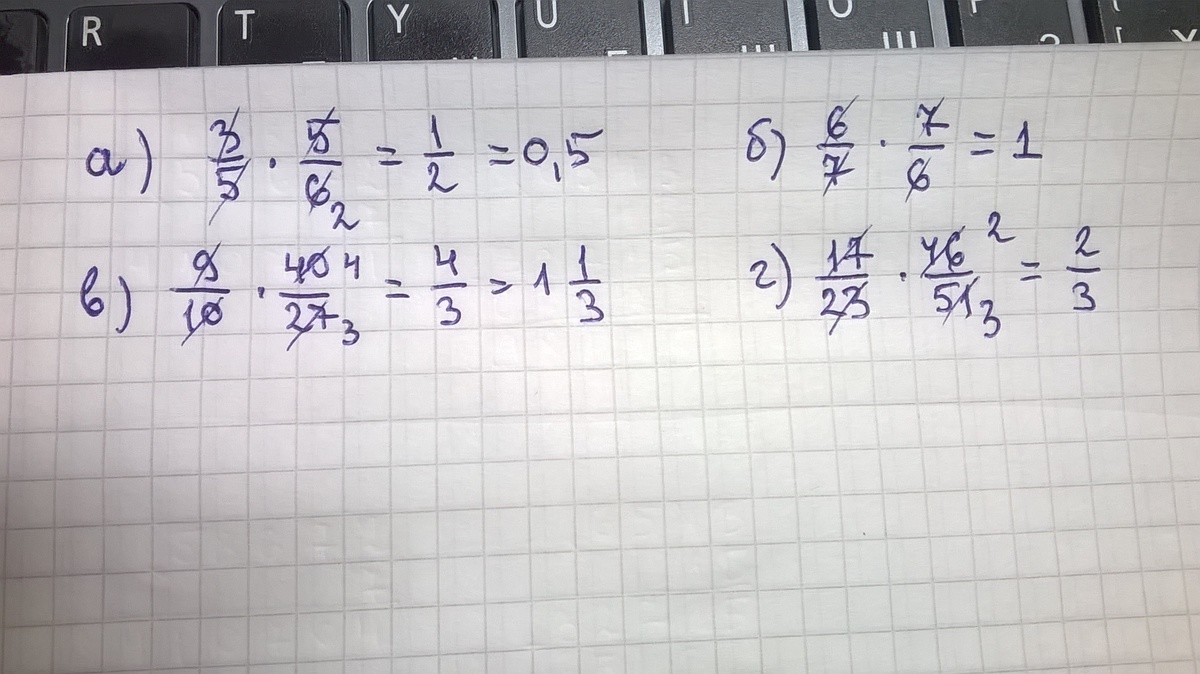 R T Y U
а) 3/5 · 5/6 2 = 1/2 = 0,5 б) 6/7 · 7/6 = 1
в) 9/10 · 40 4/27 3 = 4/3 = 1 1/3 г) 17/23 · 46 2/51 3 = 2/3